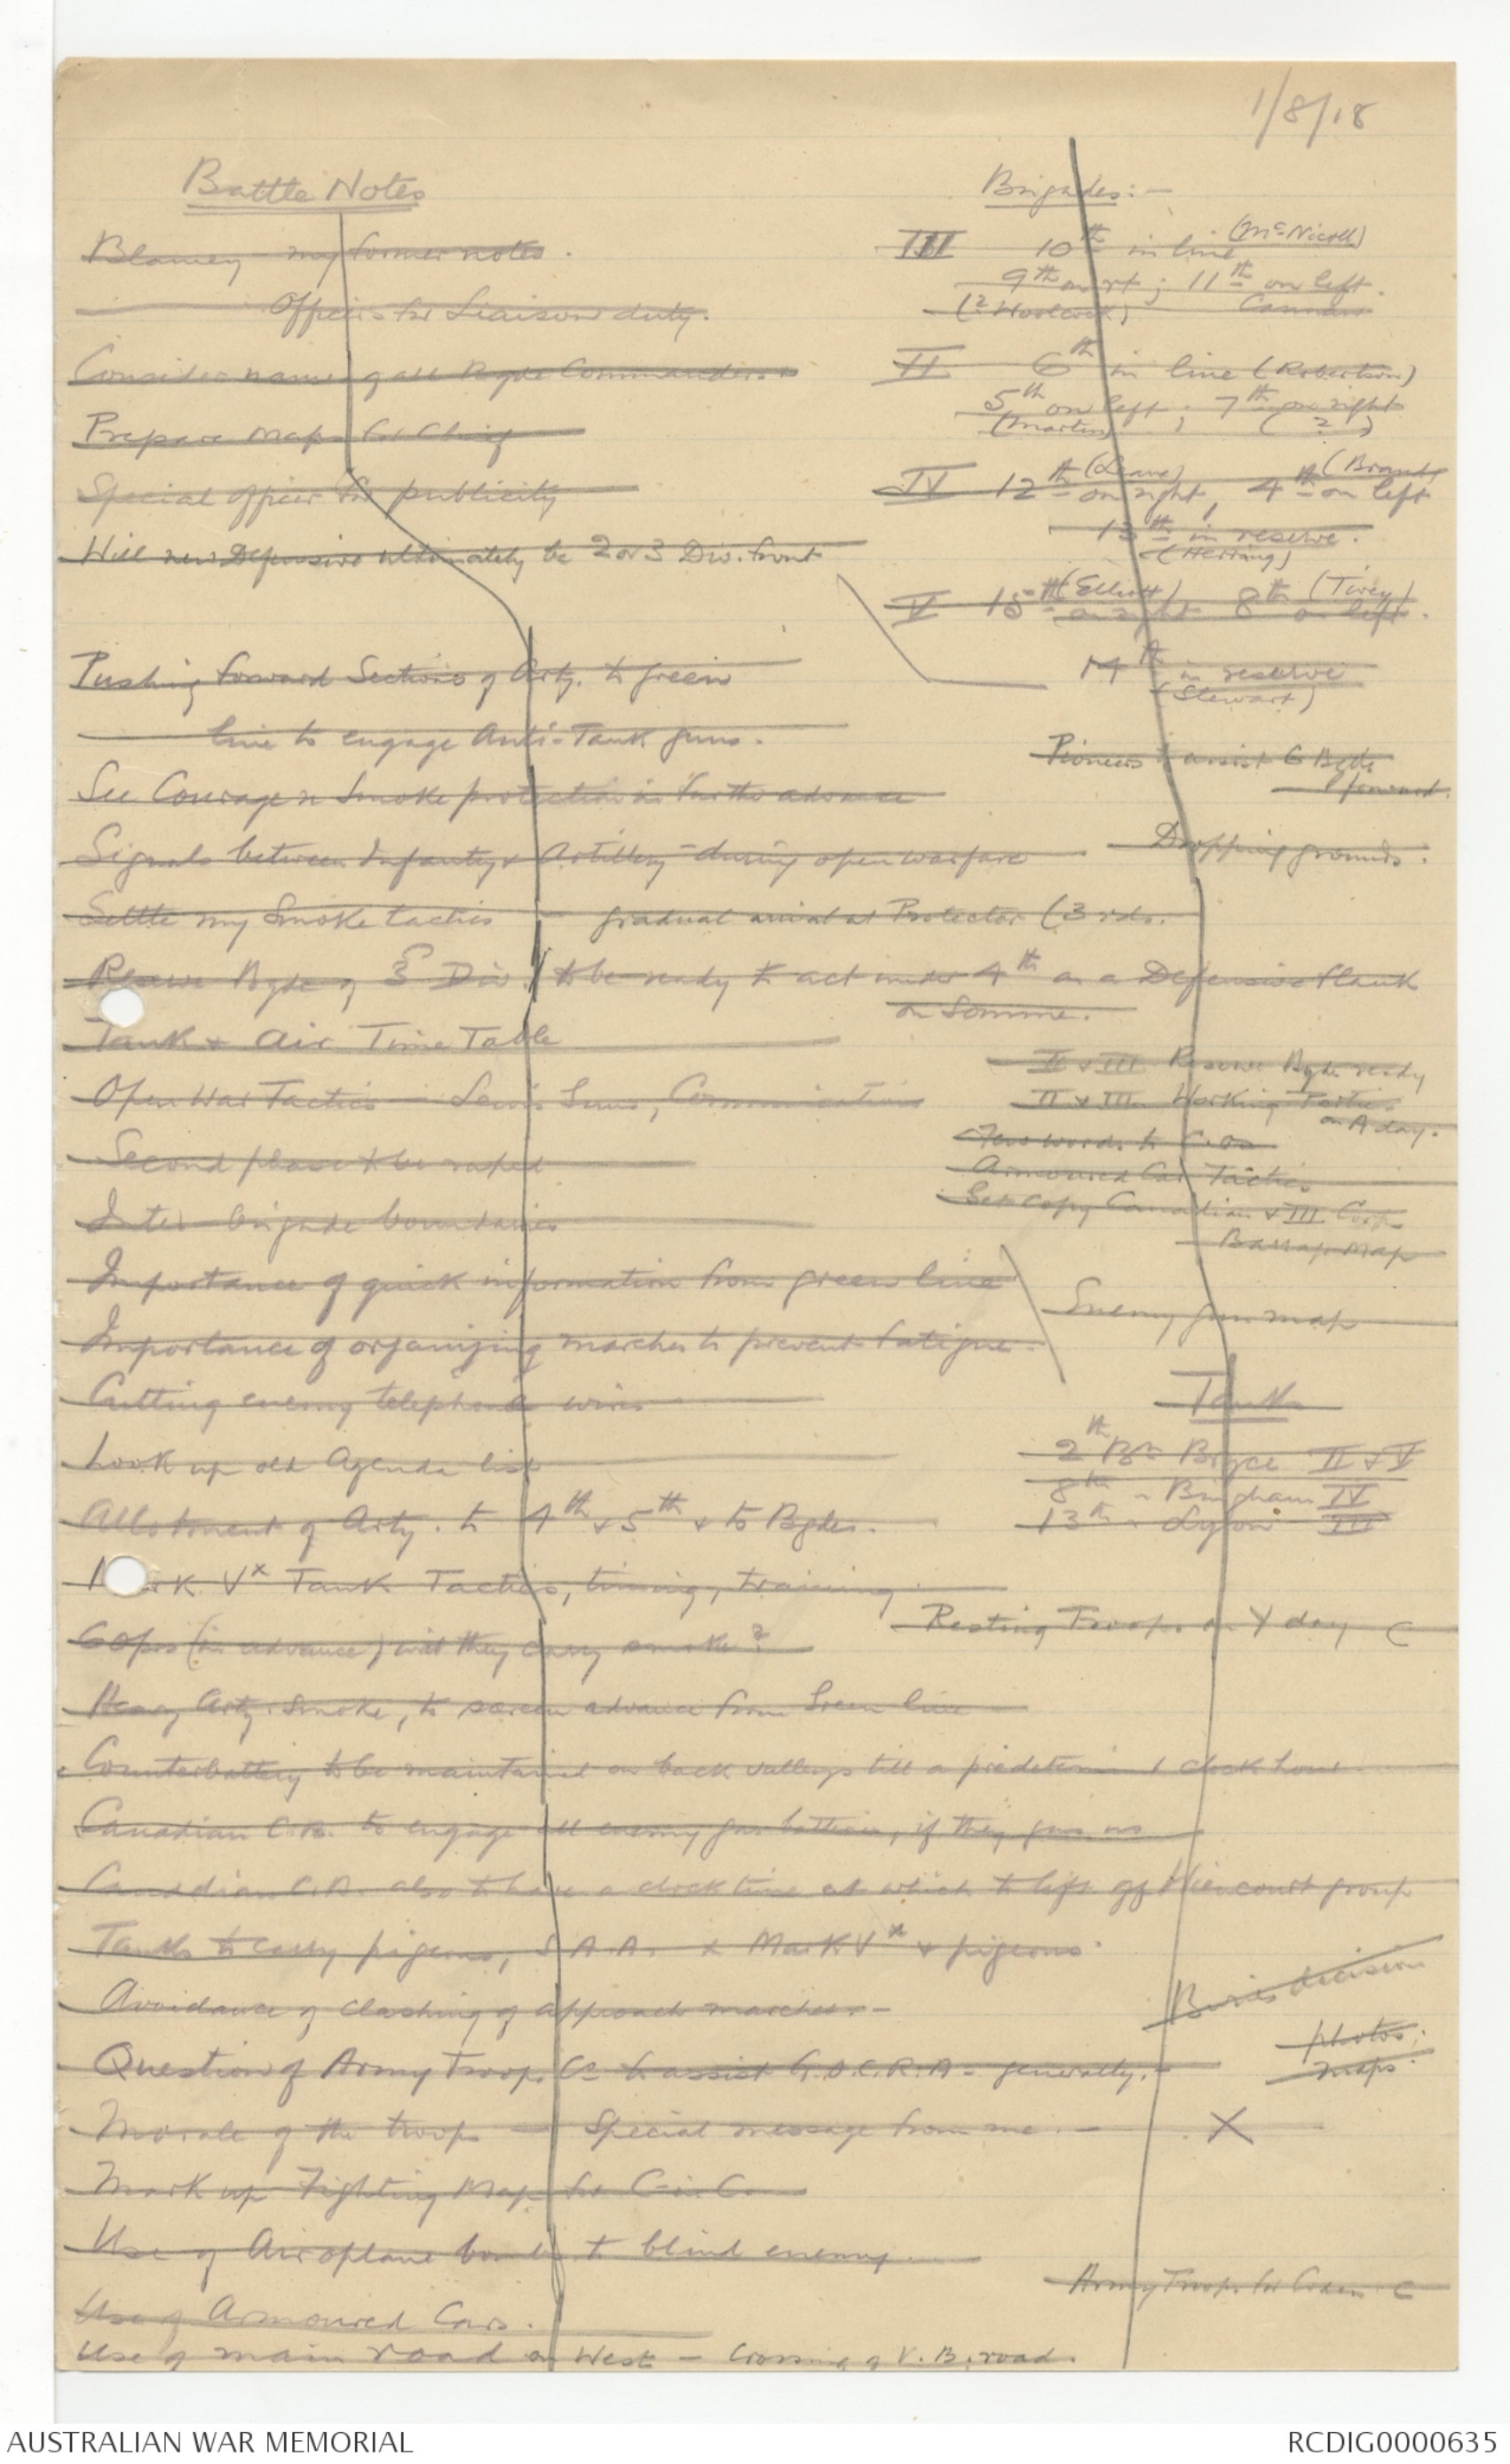 1/8/18
Battle Notes
Blamey my former notes.
Officers for Liaison duty.
Consider names of all Bgde Commanders
Prepare maps for Chief
Special officer for publicity
Will new Defensive ultimately be 2 or 3 Div. front
Pushing forward Sections of Arty. to green
line to engage Anti-Tank guns.
See Courage re Smoke protection in further advance
Signals between Infantry & Artillery during open warfare
Settle my Smoke tactics - gradual arrival at Protector (3 rds.
Reserve Bgde of 3rd Div. to be ready to act under 4th as a Defensive flank
on Somme.
Tank & Air Time Table
Open War Tactics - Lewis Guns, Communications
Second phase to be rapid
Inter brigade boundaries
Importance of quick information from green line
Importance of organizing marches to prevent fatigue.
Cutting enemy telephone wires
Look up old Agenda list
Allotment of Arty. to 4th & 5th & to Bgdes.
Mark Vx Tank Tactics, timing, training
60 prs (in advance) will they carry smoke?
Heavy Arty. Smoke, to screen advance from Green line
Counterbattery to be maintained on back valleys till a predetermined clock hour
Canadian C.B. to engage all enemy gun batteries, if they gas us
Canadian C.B. also to have a clock time at which to lift off Wiencourt group
Tanks to carry pigeons, S.A.A. & Mark Vx & pigeons
Avoidance of clashing of approach marches. -
Question of Army Troops Co to assist G.O.C.R.A. - generally. -
Morale of the troops - Special message from me. - X
Mark up Fighting Map for C-in-C
Use of Airoplane bombs to blind enemy
Use of Armoured Cars.
Use of main road on West - Crossing of V.B. road.
Brigades: -
III 10th in line (McNicoll)
9th on rt; 11th on left.
(? Woolcock) Cannan
II 6th in line (Robertson)
5th on left; 7th on right
(Martin) ; ( ? )
IV 12th (Leane) on right, 4th (Brand) on left
13th in reserve.
(Herring)
V 15th (Elliott) on right 8th (Tivey) on left.
14th in reserve
(Stewart)
Pioneers to assist 6 Bgde
forward.
Dropping grounds.
II & III Reserve Bgde ready
II & III Working Parties
on A day.
Few words to C.Os
Armoured Car Tactics
Get copy Canadian & III Corps
Barrage map
Enemy gun map
Tanks
2th Bn Bryce II & V
8th " Bingham IV
13th " Lyon III
Resting Troops on Y day C
decision
photos;
maps.
Army Troops for C
AUSTRALIAN WAR MEMORIAL
RCDIG0000635